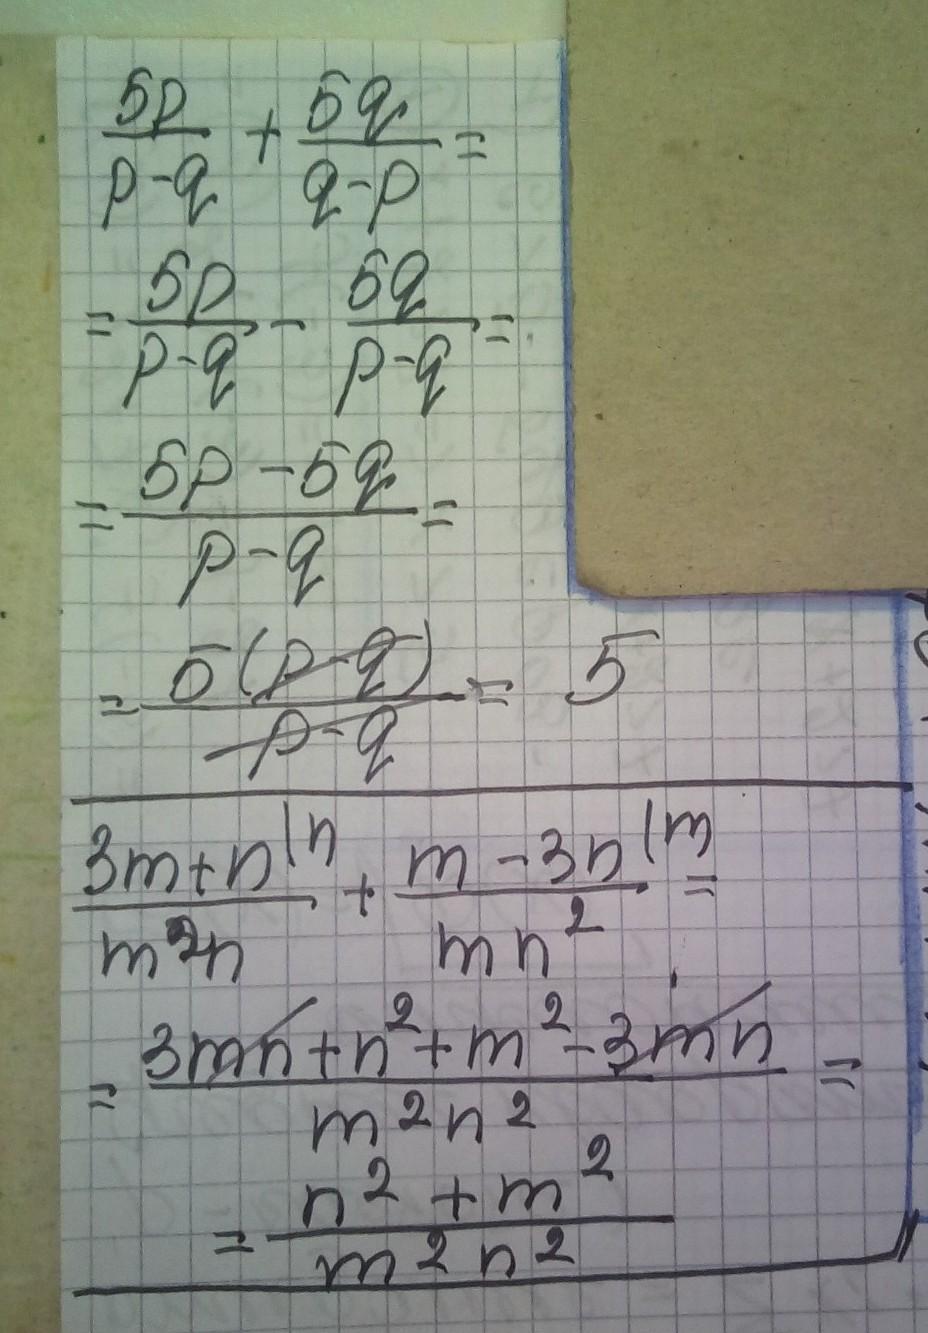 5p/(p-q) + 5q/(q-p) =
= 5p/(p-q) - 5q/(p-q) =
= (5p-5q)/(p-q) =
= 5(p-q)/(p-q) = 5
(3m+n)/(m²n) |n + (m-3n)/(mn²) |m =
= (3mn+n²+m²-3mn)/(m²n²) =
= (n²+m²)/(m²n²)